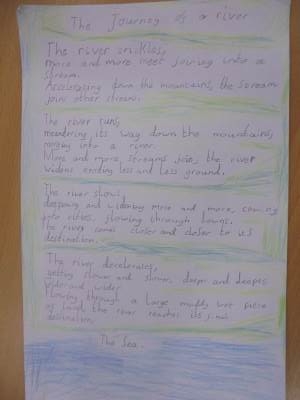 The Journey of a river
The river trickles,
more and more meet joining into a
stream.
Accelerating down the mountains, the stream
joins other streams.
The river runs,
meandering its way down the mountains,
merging into a river.
More and more, streams join, the river
widens eroding less and less ground.
The river slows,
deepening and widening more and more, coming
into cities, flowing through towns.
The river comes closer and closer to its
destination.
The river decelerates,
getting slower and slower, deeper and deeper
wider and wider
flowing through a large muddy wet piece
of land, the river reaches its final
destination
The Sea.